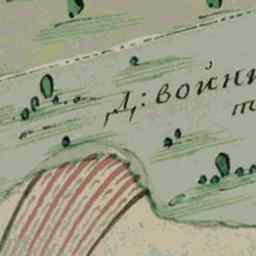 Д: войни
т